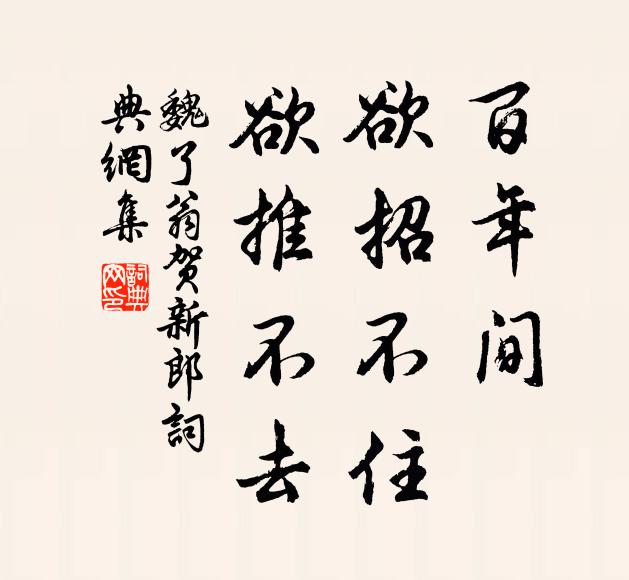 百年间
欲招不住
欲推不去
魏了翁贺新郎詞
典網集
詞典网印